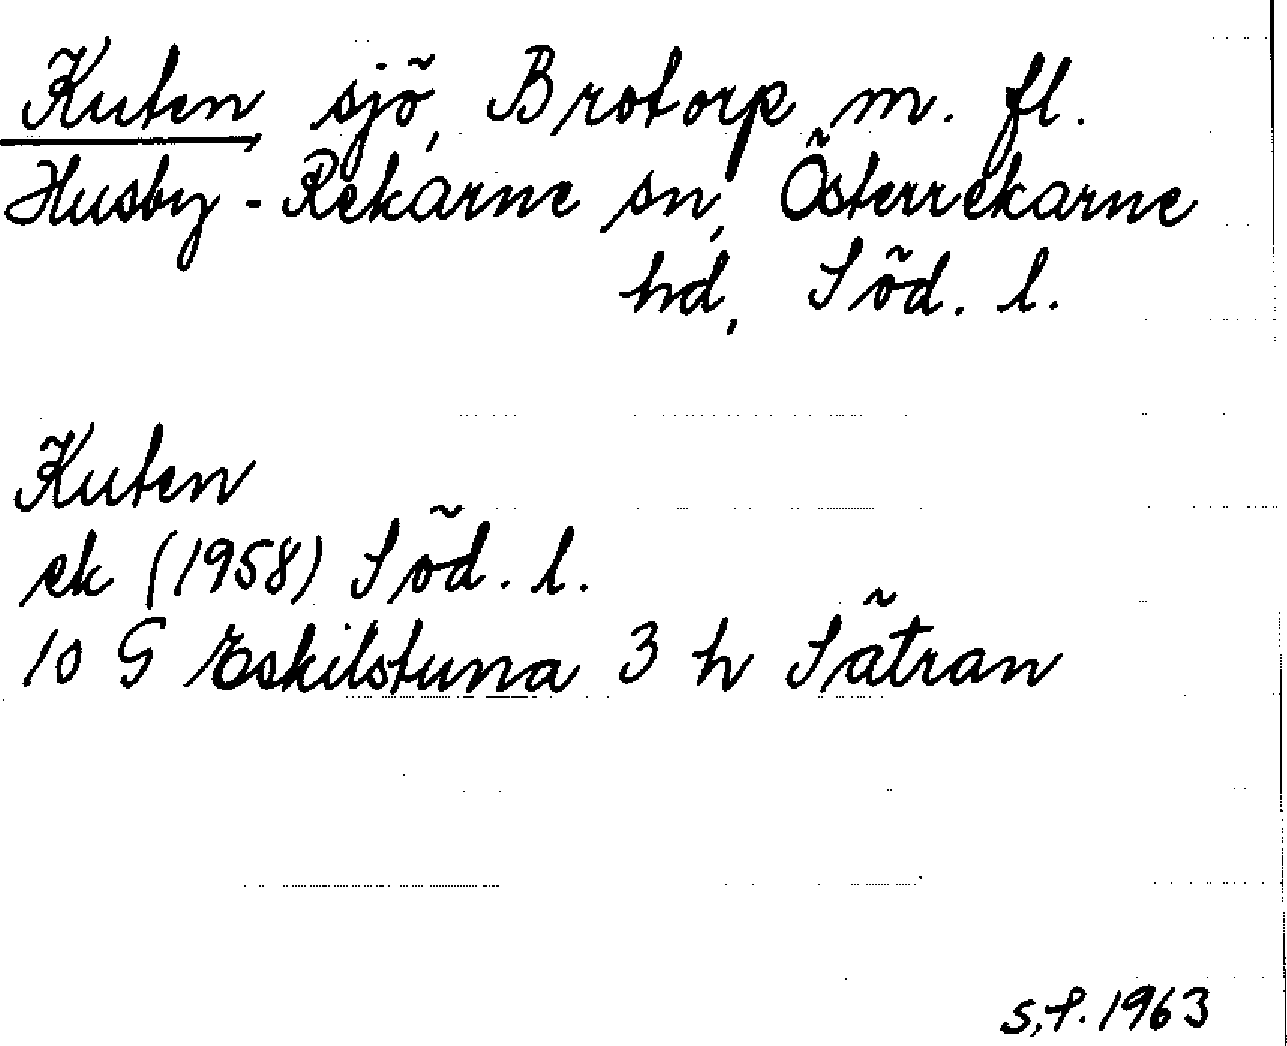 Kuten, sjö, Brotorp m. fl.
Husby-Rekarne sn, Österrekarne
hd, Söd. l.
Kuten
ek (1958) Söd. l.
10 G Eskilstuna 3 h Sätran
s.f. 1963